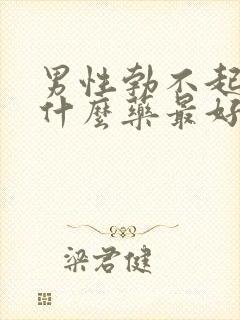 男性勃不起
什麼藥最好
梁君健